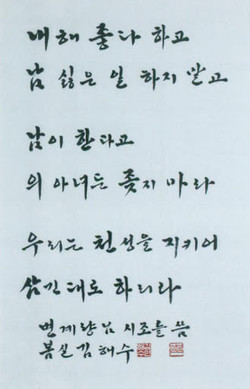 내해 좋다 하고
남 싫은 일 하지 말고
남이 한다고
의 아녀든 좇지 마라
우리는 천성을 지키어
삼긴 대로 하리라
변계량님 시조를 씀
봄실 김해수